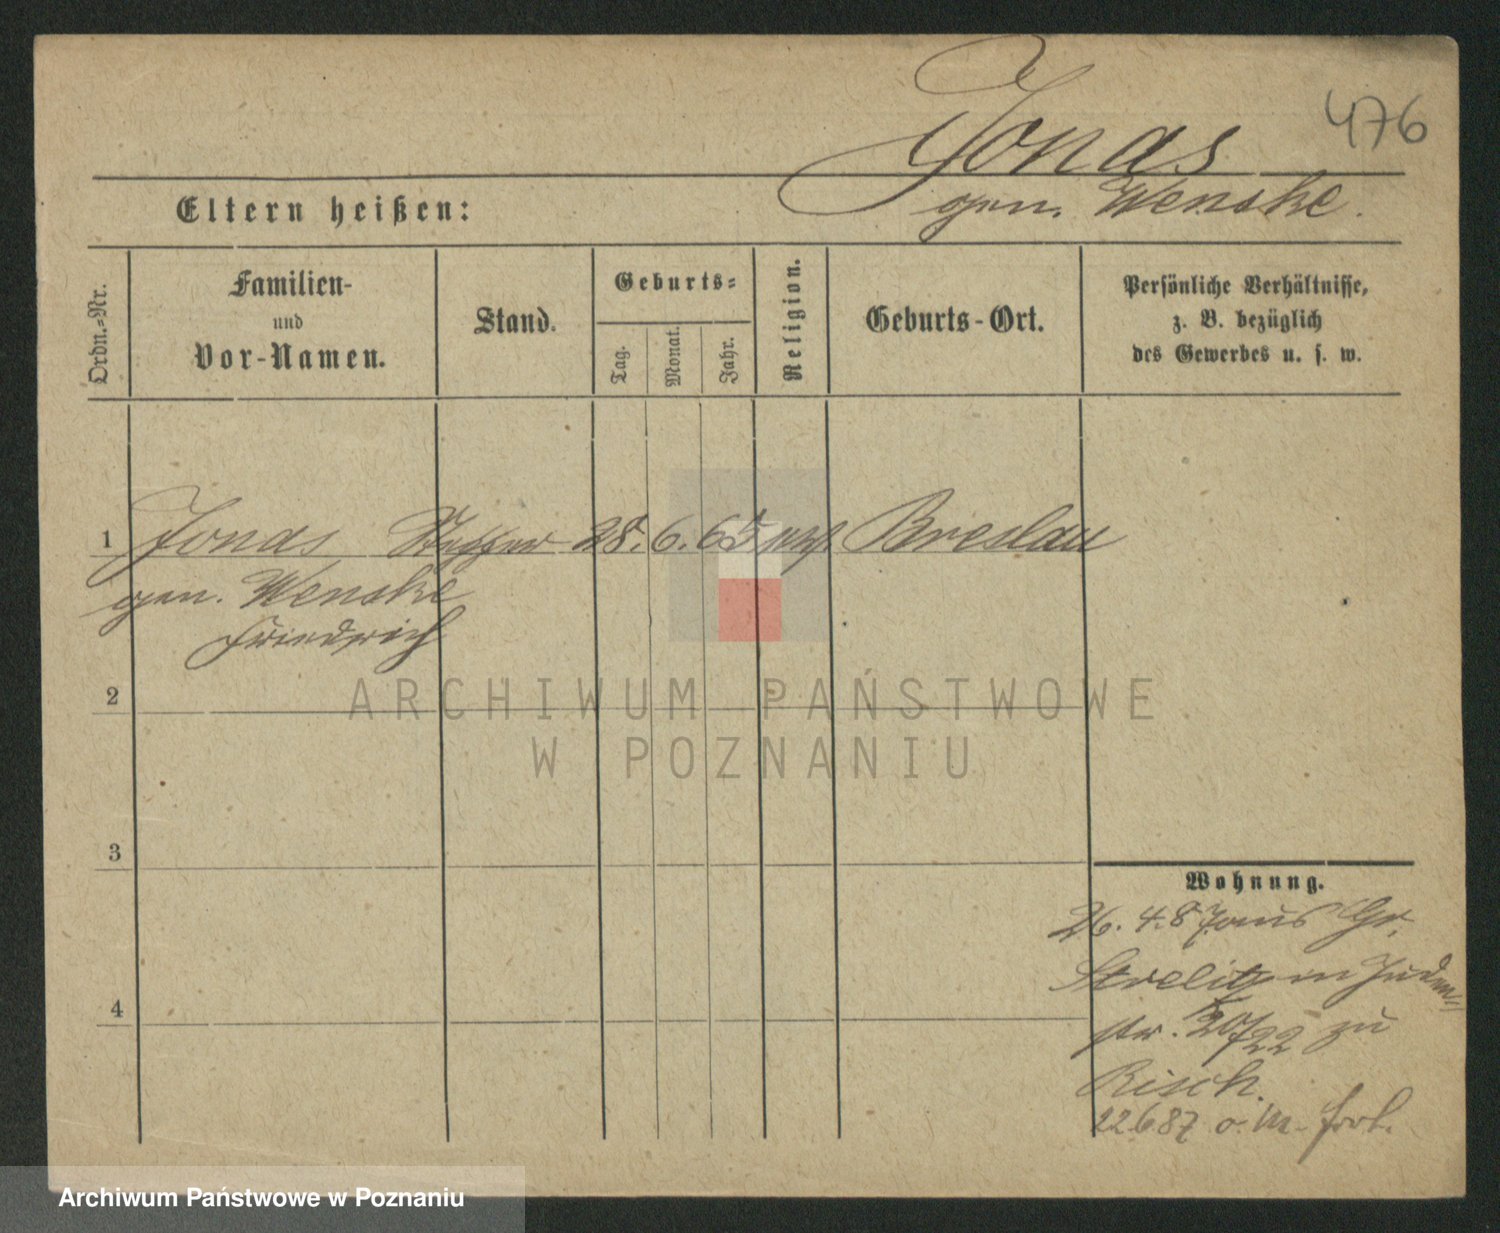 476
Jonas
gen. Wenske.
Eltern heißen:
Ordn.-Nr.
Familien-
und
Vor-Namen.
Stand.
Geburts-
Tag.
Monat.
Jahr.
Religion.
Geburts-Ort.
Persönliche Verhältnisse,
z. B. bezüglich
des Gewerbes u. s. w.
1 Jonas 28. 6. 65 Breslau
gen. Wenske
Friedrich
2
ARCHIWUM PAŃSTWOWE
W POZNANIU
3
Wohnung.
26. 4. 87 aus Gr.
Strelitz in Juden-
4
str. 20/22 zu
Risch.
22687 o. M. fort.
Archiwum Państwowe w Poznaniu